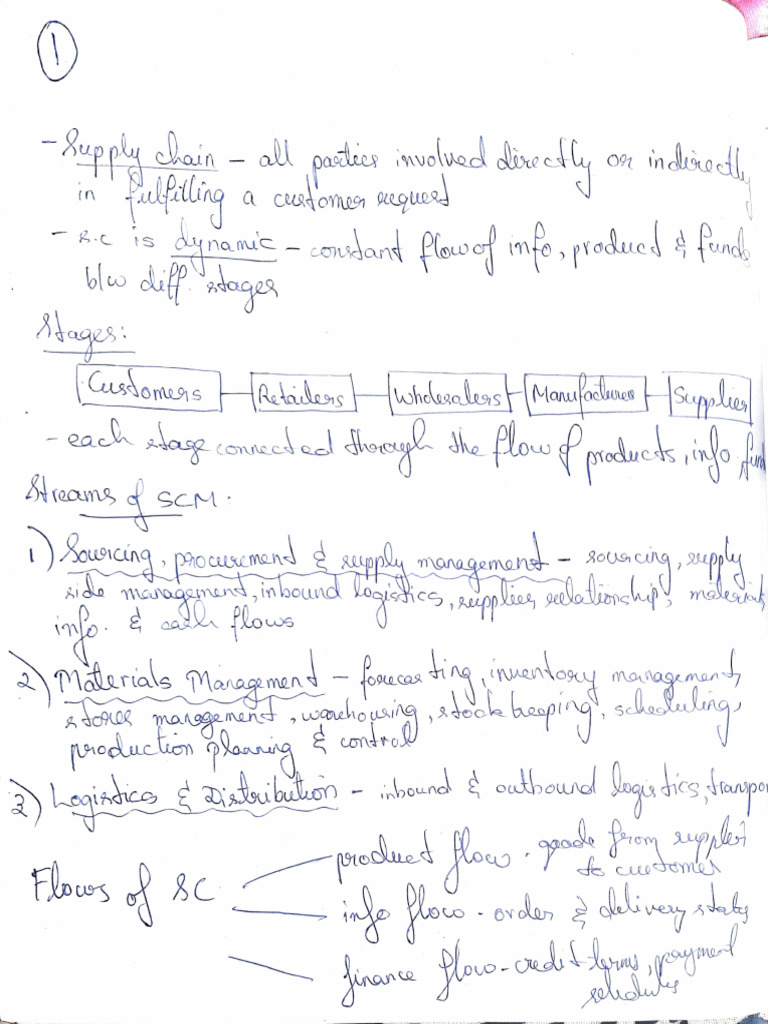 1
- Supply chain - all parties involved directly or indirectly
in fulfilling a customer request
- s.c is dynamic - constant flow of info, product & funds
b/w diff. stages
Stages:
Customers Retailers Wholesalers Manufacturers Supplier
- each stage connected through the flow of products, info, fun
Streams of SCM.
1) Sourcing, procurement & supply management - sourcing, supply
side management, inbound logistics, supplier relationship, materials
info. & cash flows
2) Materials Management - forecasting, inventory management,
stores management, warehousing, stock keeping, scheduling,
production planning & control
3) Logistics & Distribution - inbound & outbound logistics, transpor
product flow - goods from supplier
to customer
Flows of SC
info flow - order & delivery status
finance flow - credit terms, payment
schedules